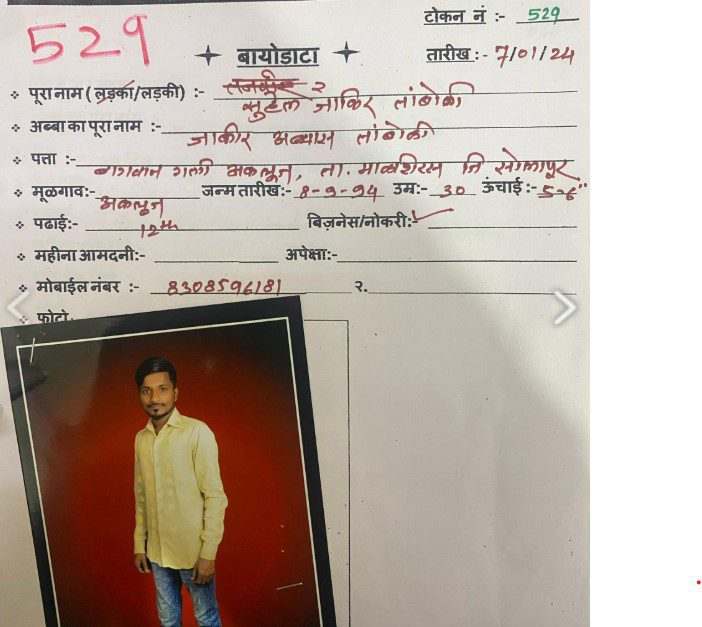 टोकन नं :- 529
529
बायोडाटा
तारीख :- 7/01/24
पूरा नाम ( लड़का/लड़की) :- सुहेल जाकिर तांबोळी
अब्बा का पूरा नाम :- जाकीर अब्बास तांबोळी
पत्ता :- बागवान गली अकलूज, ता. माळशिरस जि सोलापूर
मूळगाव:- अकलूज जन्म तारीख:- 8-9-94 उम्र:- 30 ऊंचाई :- 5-6"
पढाई:- 12th बिज़नेस/नोकरी:-
महीना आमदनी:- अपेक्षा:-
मोबाईल नंबर :- 8308596181 २.
फोटो